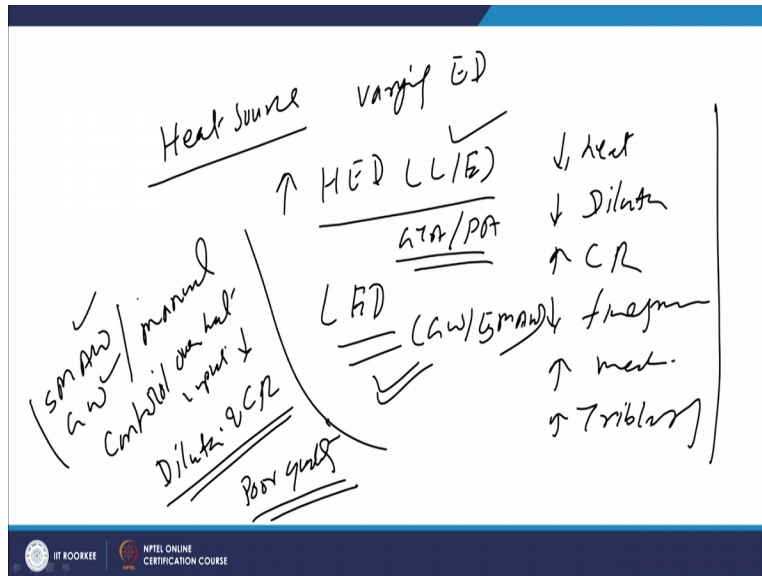 Heat Source varying ED
↑ HED (L/E)
GTA/PA
LED
(GW/SMAW)
↓ heat
↓ Dilutn
↑ CR
↓
↑ mech.
↑ Tribology
SMAW / manual
GW
Control over heat
input ↓
Dilutn & CR
Poor quality
IIT ROORKEE
NPTEL ONLINE
CERTIFICATION COURSE